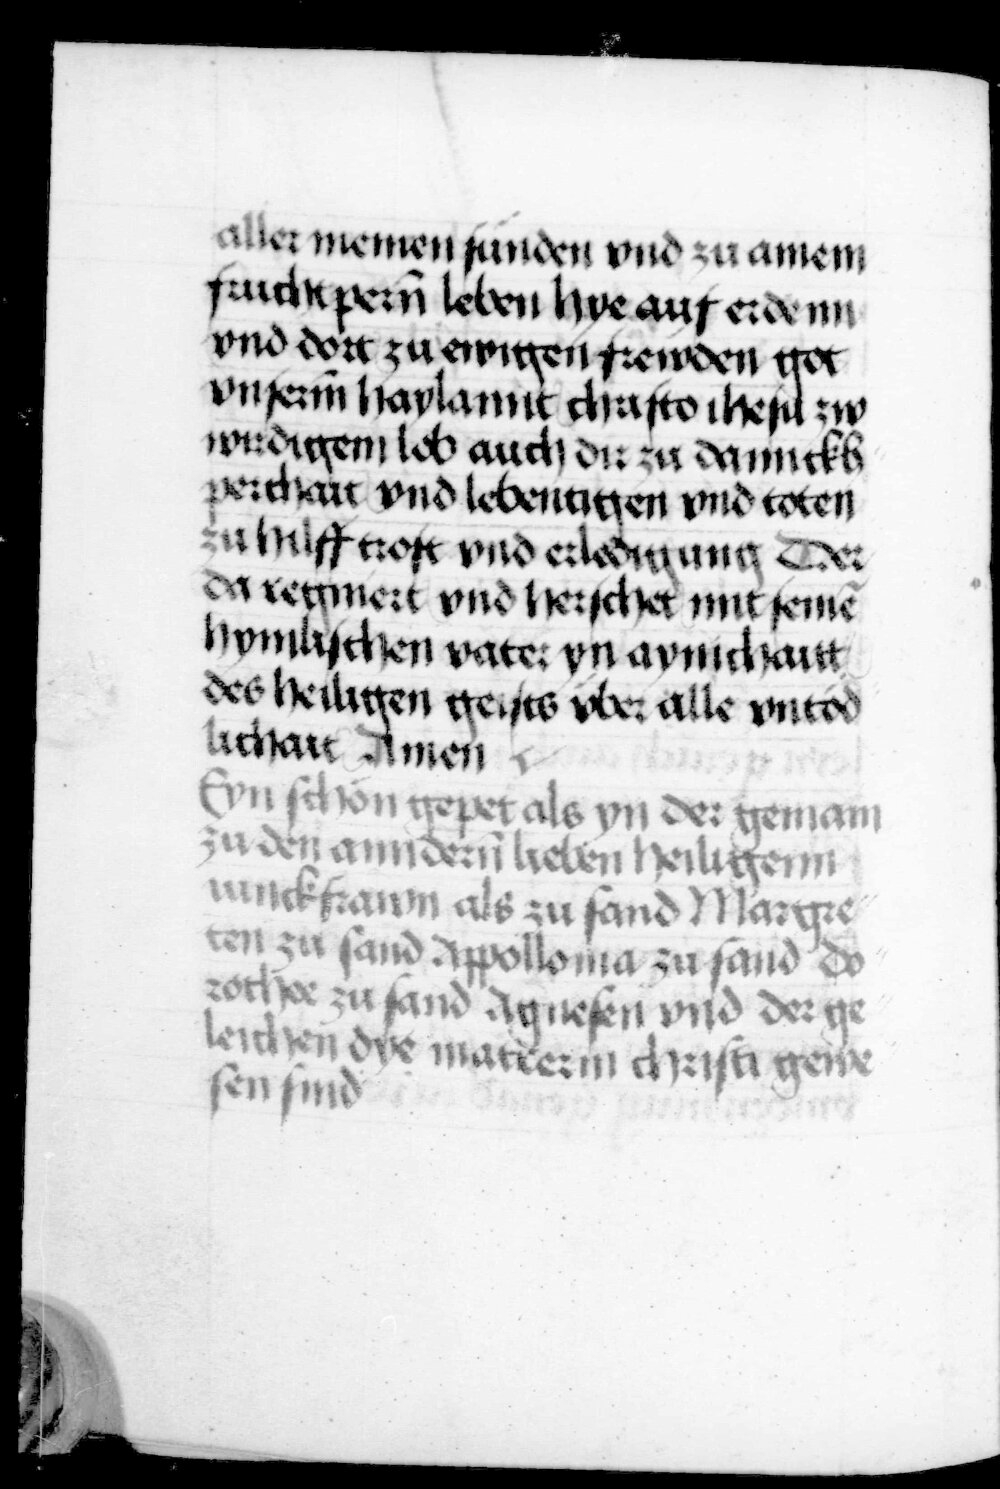 aller meinen sünden vnd zu ainem
fruchtpern̄ leben hye auf erdenn
vnd dort zu ewigen frewden got
vnserm̄ haylannt christo ihesu zw
wirdigem lob auch dir zu dannckh
perchait vnd lebentigen vnd toten
zu hilff trost vnd erledigung Der
da regniert vnd herschet mit seinē
hymlischen vater yn aynichaitt
des heiligen geists vber alle vntöd
lichait Amen
Eyn schön gepet als yn der gemain
zu den anndern̄ lieben heiligenn
iunckfrawn als zu sand Margre
ten zu sand Appollonia zu sand Do
rothee zu sand Agnesen vnd der ge
leichen dye martrerin christi gewe
sen sind